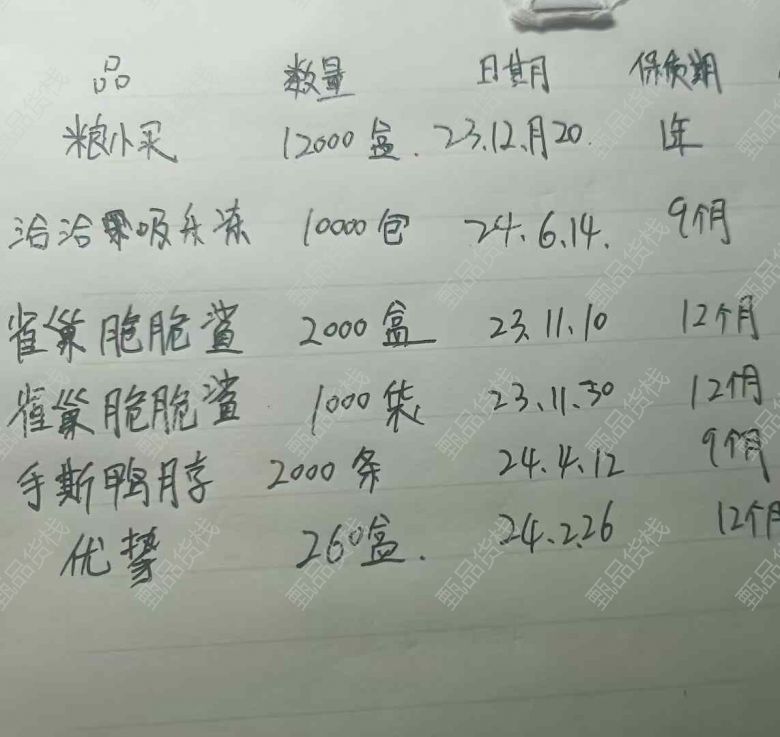 品 数量 日期 保质期
粮小买 12000盒. 23.12.月20. 1年
洽洽果吸乐冻 10000包 24.6.14. 9个月
雀巢脆脆鲨 2000盒 23.11.10 12个月
雀巢脆脆鲨 1000袋 23.11.30 12个月
手撕鸭脖 2000条 24.4.12 9个月
优势 260盒. 24.2.26 12个月
甄品货栈